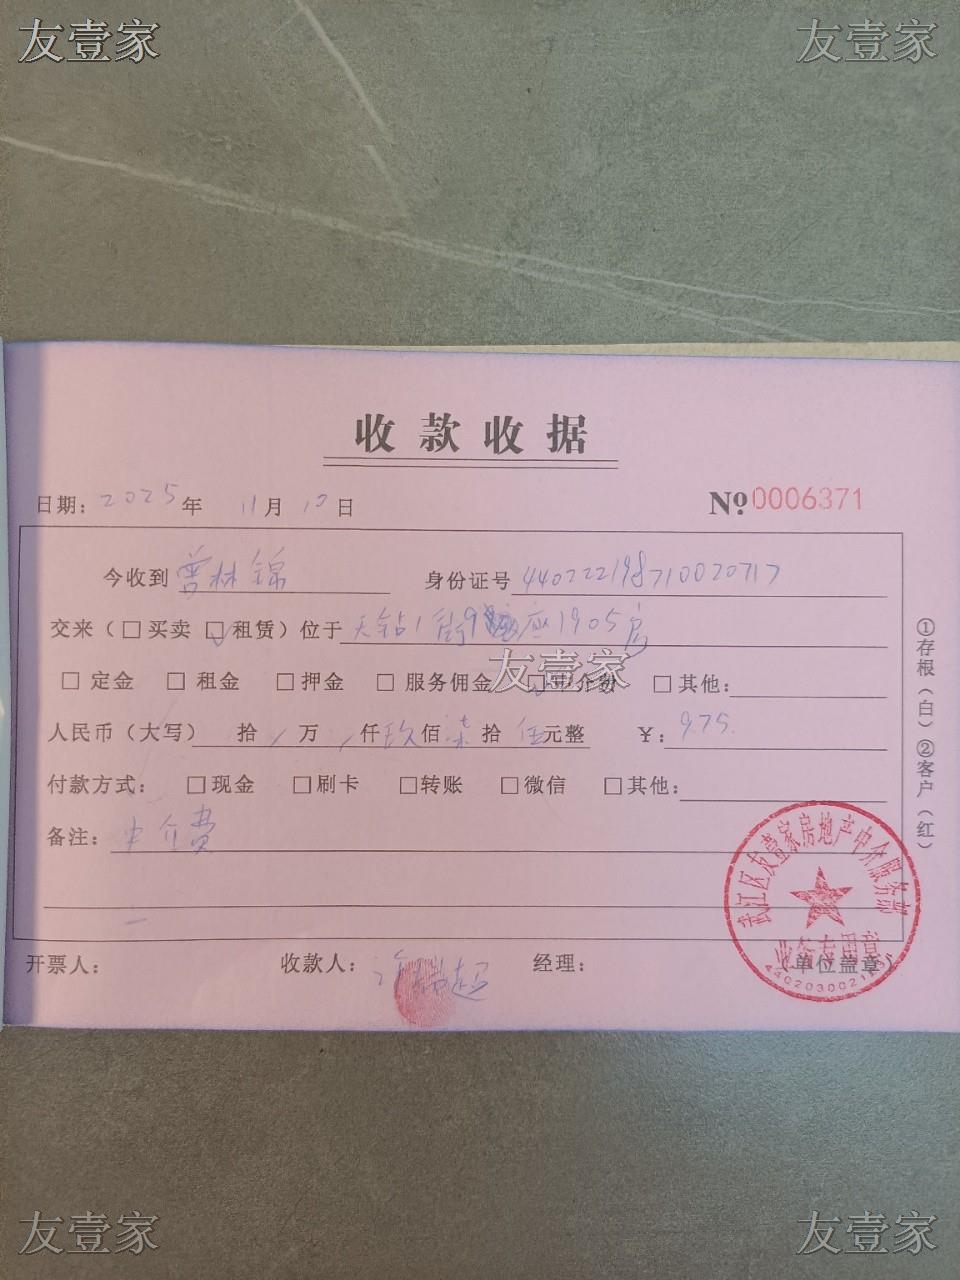 友壹家 友壹家
收款收据
日期: 2025年 11月 10日 №0006371
今收到 曾林锦 身份证号 440222198710020717
交来（□买卖 ☑租赁）位于 天钻1街9座1905房
□ 定金 □ 租金 □ 押金 □ 服务佣金 ☑中介费 □其他:
友壹家
人民币（大写） 拾 / 万 / 仟玖佰柒拾伍元整 ¥: 975.
付款方式: □现金 □刷卡 □转账 □微信 □其他:
备注: 中介费
开票人: 收款人: 经理: （单位盖章）
①存根（白）②客户（红）
武江区友壹家房地产中介服务部
业务专用章
友壹家 友壹家